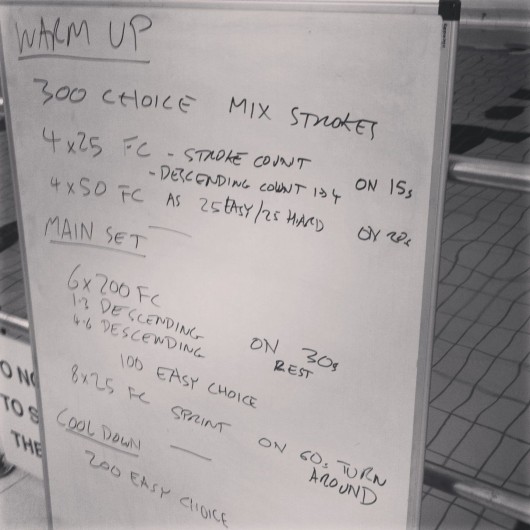 WARM UP
300 CHOICE MIX STROKES
4x25 FC - STROKE COUNT
- DESCENDING COUNT 1>4 ON 15s
4x50 FC AS 25 EASY/25 HARD ON 20s
MAIN SET
6x200 FC
1-3 DESCENDING
4-6 DESCENDING ON 30s
REST
100 EASY CHOICE
8x25 FC SPRINT ON 60s TURN
AROUND
COOL DOWN
200 EASY CHOICE
TO S
THE